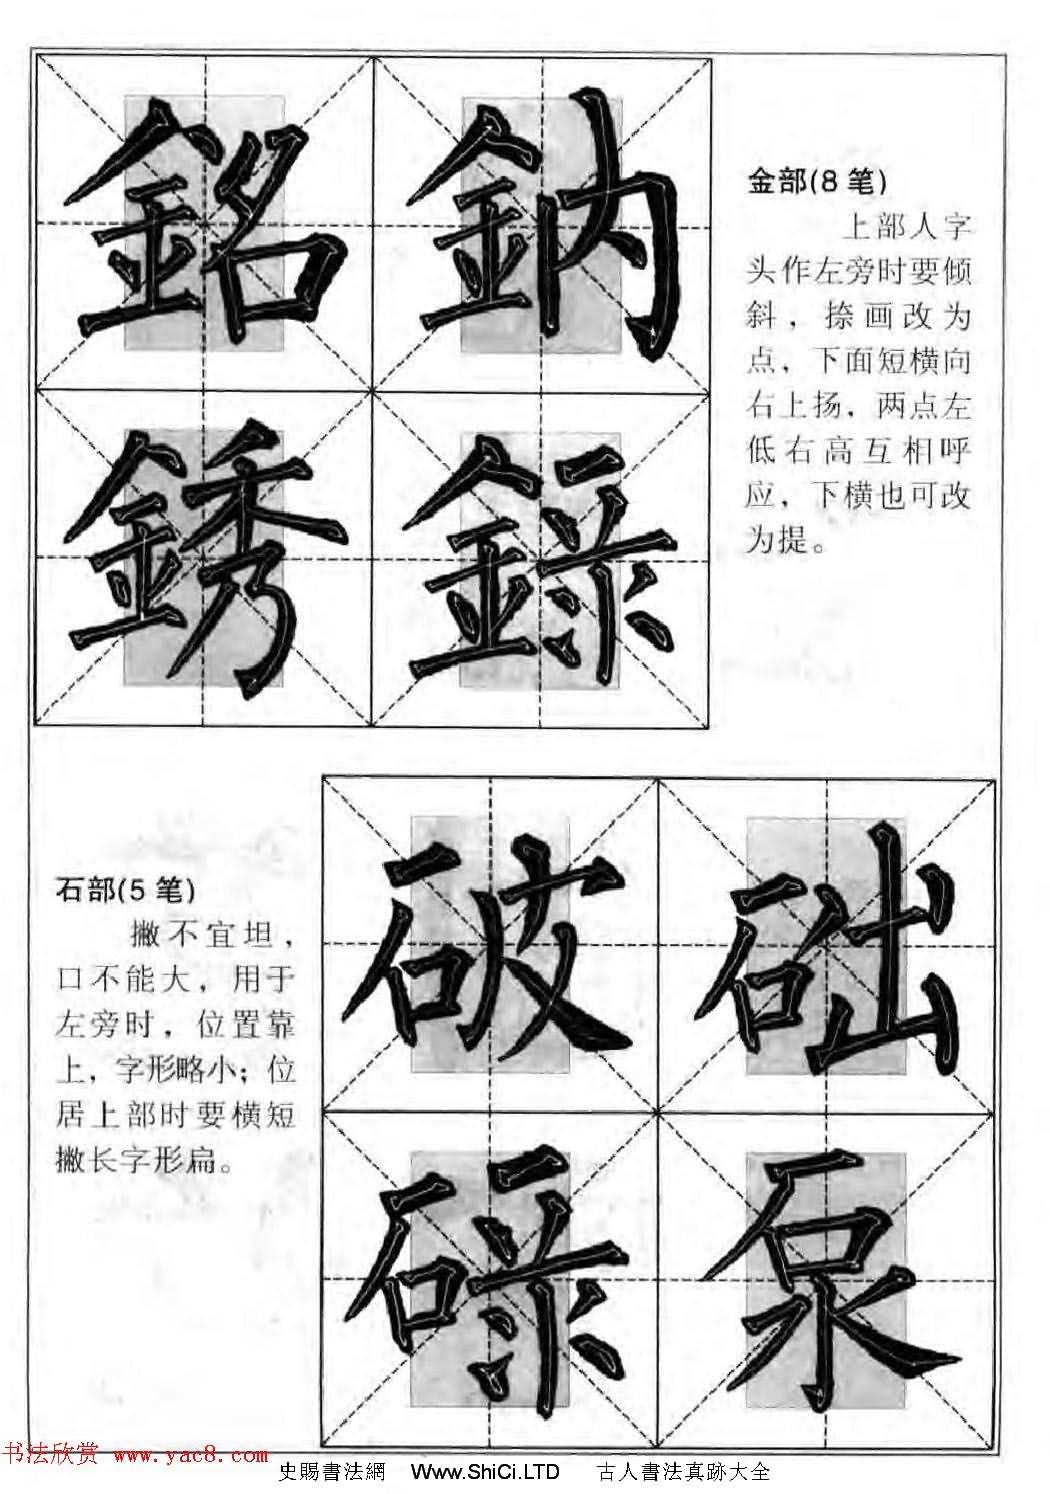 銘 鈉
銹 錄
金部(8 笔)
上部人字
头作左旁时要倾
斜，捺画改为
点，下面短横向
右上扬，两点左
低右高互相呼
应，下横也可改
为提。
石部(5 笔)
撇不宜坦，
口不能大，用于
左旁时，位置靠
上，字形略小；位
居上部时要横短
撇长字形扁。
破 础
碌 泵
书法欣赏 www.yac8.com
史賜書法網 Www.ShiCi.LTD 古人書法真跡大全